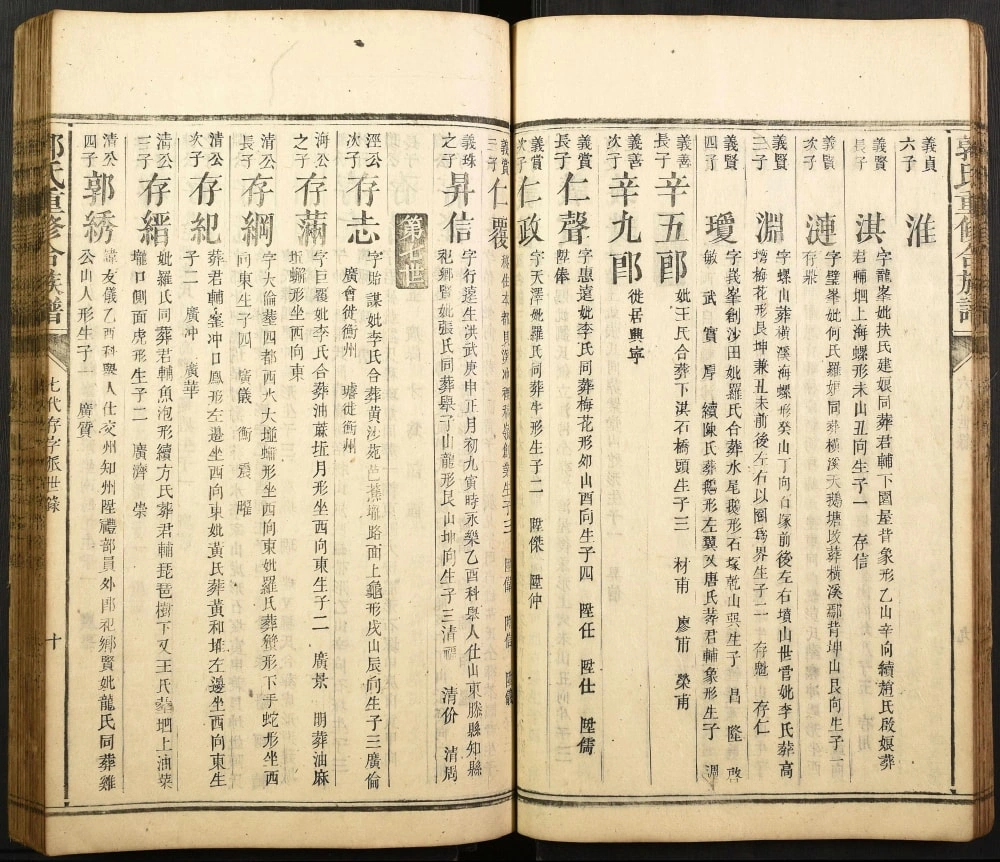 郭氏重修合族譜
義貞六子 淮
義賢長子 淇 字龍峯妣扶氏建娘同葬君輔下圍屋背象形乙山辛向續趙氏啟娘葬
君輔垇上海螺形未山丑向生子一 存信
義賢次子 漣 字璧峯妣何氏羅娘同葬橫溪天鵝塘改葬橫溪鄢背坤山艮向生子一
義賢三子 淵 字螺山葬橫溪海螺形癸山丁向白塚前後左右墳山世管妣李氏葬高
塆梅花形艮坤兼丑未前後左右以圍爲界生子二 存魁 存仁
義賢四子 瓊 字峩峯創沙田妣羅氏合葬水尾鵝形石塚乾山巽生子 昌 隆 啓
敏 武 寶 厚 續陳氏葬鵝形左翼又唐氏葬君輔象形生子 調
義善長子 辛五郎 妣王氏合葬下淇石橋頭生子三 材甫 廖甫 榮甫
義善次子 辛九郎 徙居興寧
義賞長子 仁聲 字惠遠妣李氏同葬梅花形卯山酉向生子四 陞任 陞仕 陞儒
陞俸
義賞次子 仁政 字天澤妣羅氏同葬牛形生子二 陞傑 陞仲
義賞三子 仁覆
義珠之子 昇信 字行遠生洪武庚申正月初九寅時永樂乙酉科舉人仕山東滕縣知縣
祀鄉賢妣張氏同葬 山龍形艮山坤向生子三清福 清价 清周
第七世
涇公次子 存志 字貽謀妣李氏合葬黃沙苑芭蕉塆路面上龜形戌山辰向生子三廣倫
廣會徙衡州 璿徙衡州
海公之子 存滿 字巨覆妣李氏合葬油蔴坵月形坐西向東生子二 廣景 明葬油麻
坵蠏形坐西向東
清公長子 存綱 字大倫葬四都西 大壠 形坐西向東妣羅氏葬蟹形下手蛇形坐西
向東生子四 廣儀 衡 震 曜
清公次子 存紀 葬君輔 冲口鳳形左邊坐西向東妣黃氏葬黃和堆左邊坐西向東生
子二 廣冲 廣華
清公三子 存縉 妣羅氏同葬君輔魚泡形續方氏葬君輔琵琶樹下又王氏葬垇上油菜
壠口側面虎形生子二 廣濟 崇
清公四子 郭綉 諱友儀乙酉科舉人仕交州知州陞禮部員外郎祀鄉賢妣龍氏同葬雞
公山人形生子一 廣質
郭氏重修合族譜 七代存字派世錄 十